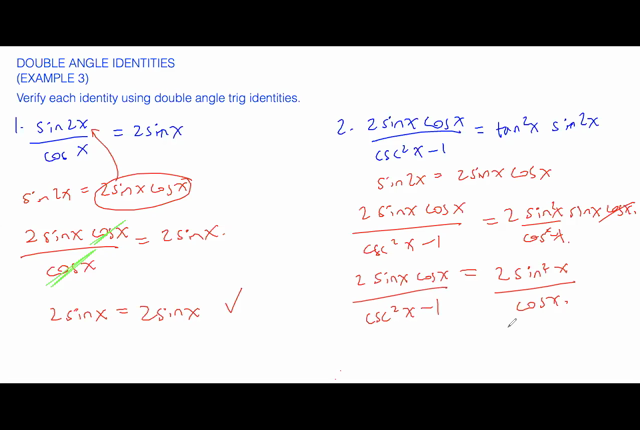 DOUBLE ANGLE IDENTITIES
(EXAMPLE 3)
Verify each identity using double angle trig identities.
1. sin2x / cos x = 2sinx
sin2x = 2sinx cosx
2sinx cosx / cosx = 2sinx.
2sinx = 2sinx ✓
2. 2sinx cosx / csc²x-1 = tan²x sin2x
sin2x = 2sinx cosx
2sinx cosx / csc²x-1 = 2 sin²x / cos²x. sinx cosx.
2sinx cosx / csc²x-1 = 2sin²x / cosx.